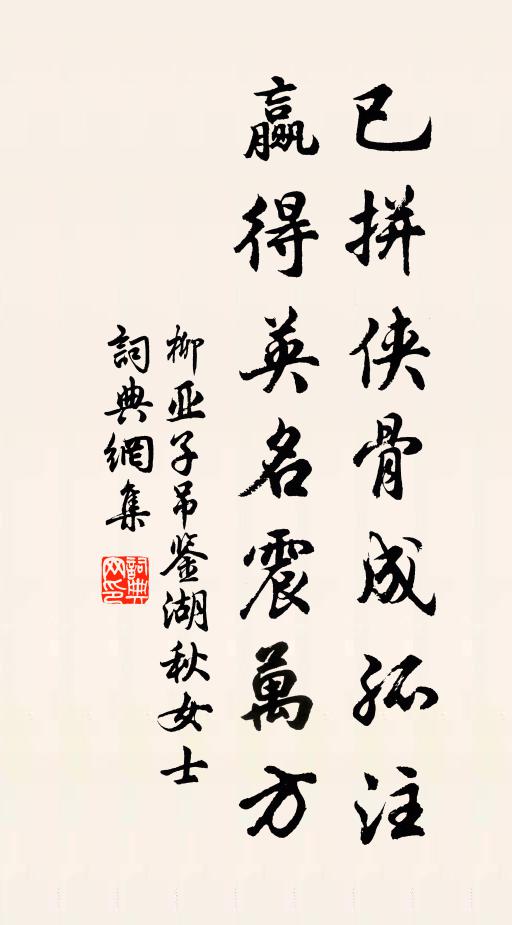 已拼侠骨成孤注
赢得英名震萬方
柳亚子吊鉴湖秋女士
詞典網集
詞典
网印